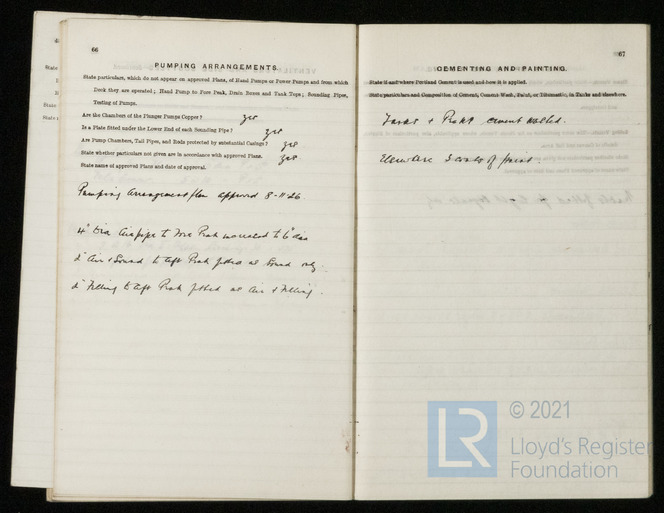 66
PUMPING ARRANGEMENTS.
State particulars, which do not appear on approved Plans, of Hand Pumps or Power Pumps and from which
Deck they are operated; Hand Pump to Fore Peak, Drain Boxes and Tank Tops; Sounding Pipes,
Testing of Pumps.
Are the Chambers of the Plunger Pumps Copper? yes
Is a Plate fitted under the Lower End of each Sounding Pipe? yes
Are Pump Chambers, Tail Pipes, and Rods protected by substantial Casings? yes
State whether particulars not given are in accordance with approved Plans. yes
State name of approved Plans and date of approval.
Pumping Arrangement plan approved 8-11-26.
4" dia Air pipe to Fore Peak increased to 6" dia
2" Air & Sound to Aft Peak fitted as Sound only.
2" Filling to Aft Peak fitted as Air & Filling.
67
CEMENTING AND PAINTING.
State if and where Portland Cement is used and how it is applied.
State particulars and Composition of Cement, Cement-Wash, Paint, or Bitumastic, in Tanks and elsewhere.
Tanks & Peaks cement washed.
Elsewhere 3 coats of paint.
LR
© 2021
Lloyd's Register
Foundation